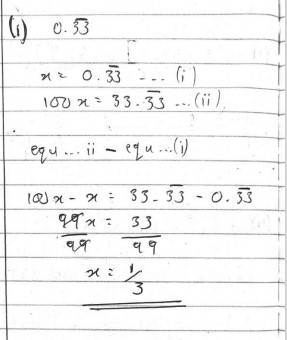 (i) 0.3̅3̅
x = 0.3̅3̅ --- (i)
100 x = 33.3̅3̅ ...(ii)
equ... ii - equ...(i)
100x - x = 33.3̅3̅ - 0.3̅3̅
99x = 33
99 99
x = 1/3